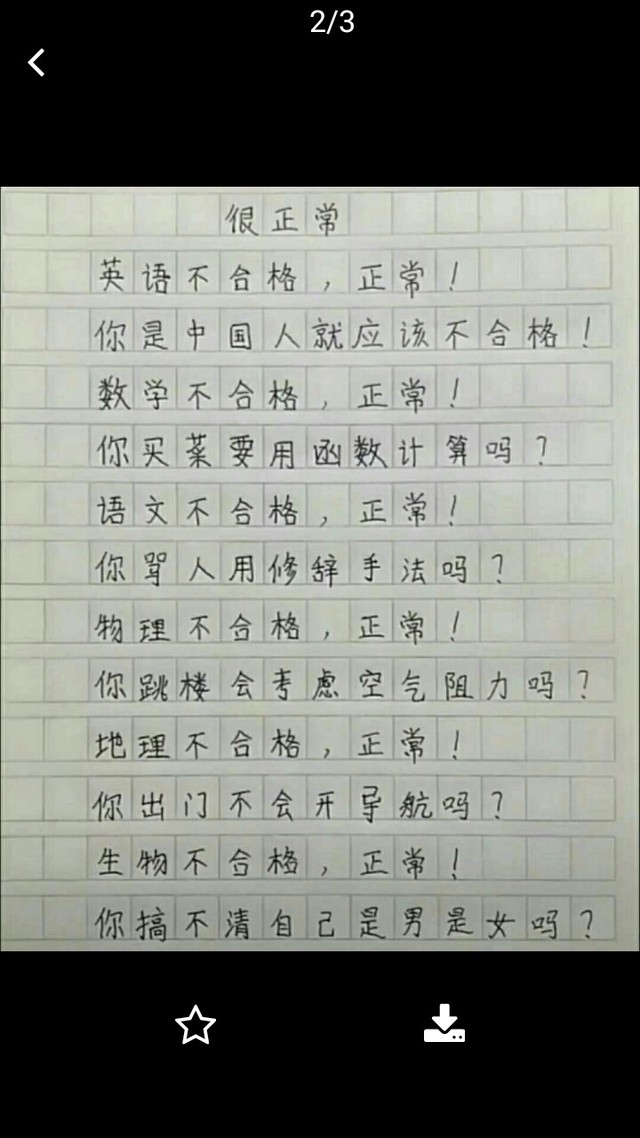 2/3
很正常
英语不合格，正常！
你是中国人就应该不合格！
数学不合格，正常！
你买菜要用函数计算吗？
语文不合格，正常！
你骂人用修辞手法吗？
物理不合格，正常！
你跳楼会考虑空气阻力吗？
地理不合格，正常！
你出门不会开导航吗？
生物不合格，正常！
你搞不清自己是男是女吗？